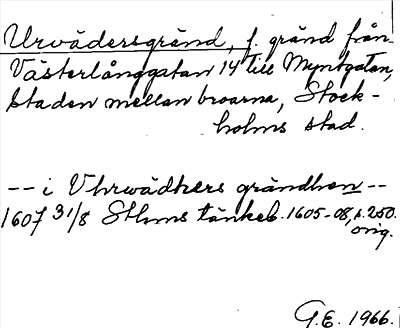 Urvädersgränd, f. gränd från
Västerlånggatan 14 till Myntgatan,
Staden mellan broarna, Stock-
holms stad.
-- i Vhrwädhers grändhen --
1607 31/8 Sthms tänkeb. 1605-08, s. 250.
orig.
G.E. 1966.